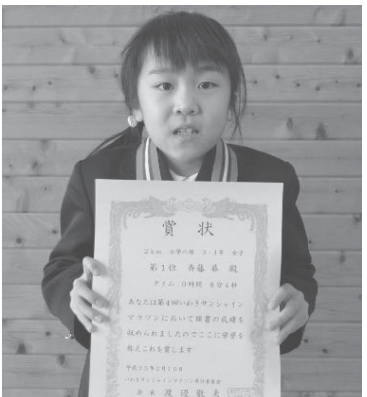 賞状
2km 小学の部 3・4年 女子
第1位 斉藤 殿
タイム 0時間 8分4秒
あなたは第4回いわきサンシャイン
マラソンにおいて頭書の成績を
収められましたのでここに栄誉を
称えこれを賞します
平成25年2月10日
いわきサンシャインマラソン実行委員会
会長 渡辺敬夫